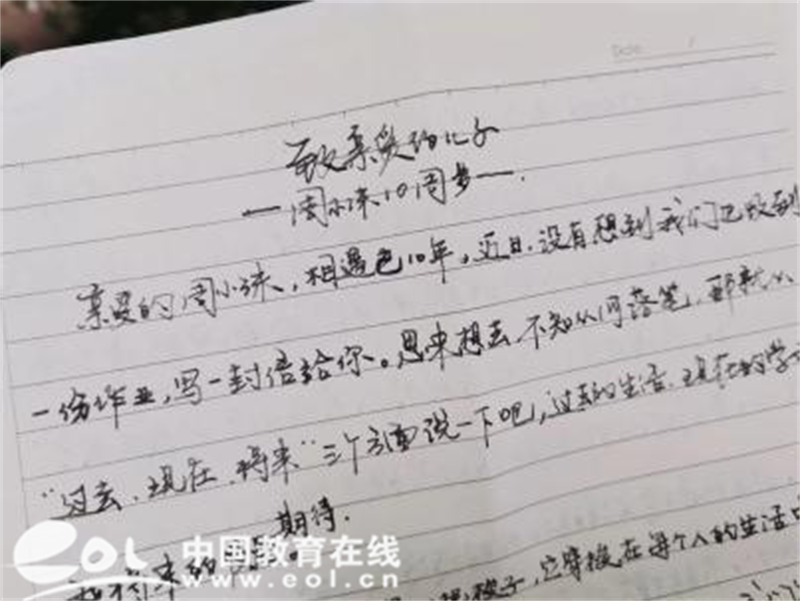 Date /
致亲爱的儿子
—周小沫10周岁—.
亲爱的周小沫,相遇已10年,近日,没有想到我们已收到
一份作业,写一封信给你。思来想去,不知从何落笔,那就从
"过去、现在、将来"三个方面说一下吧,过去的生活,现在的学
将来的 期待.
孩子,它等接在每个人的生活
中国教育在线
www.eol.cn